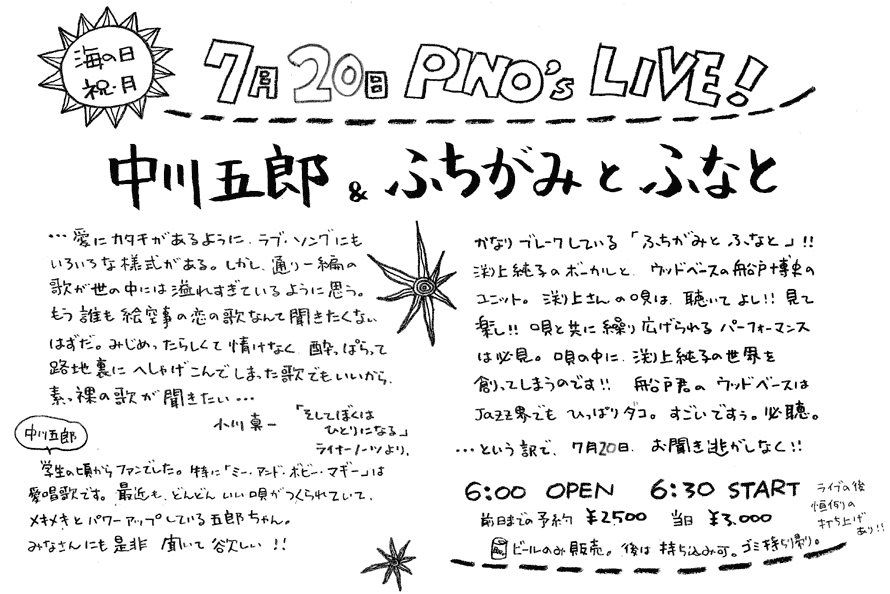 海の日
祝・月
7月20日 PINO's LIVE!
中川五郎 & ふちがみとふなと
… 愛にカタチがあるように、ラブ・ソングにも
いろいろな様式がある。しかし、通り一編の
歌が世の中には溢れすぎているように思う。
もう誰も絵空事の恋の歌なんて聞きたくない
はずだ。みじめったらしくて情けなく、酔っぱらって
路地裏にへしゃげこんでしまった歌でもいいから、
素っ裸の歌が聞きたい…
小川真一 「そしてぼくは
ひとりになる」
ライナーノーツより、
中川五郎
学生の頃からファンでした。特に「ミー・アンド・ボビー・マギー」は
愛唱歌です。最近も、どんどんいい唄がつくられていて、
メキメキとパワーアップしている五郎ちゃん。
みなさんにも是非聞いて欲しい!!
かなりブレークしている「ふちがみとふなと」!!
渕上純子のボーカルと、ウッドベースの船戸博史の
ユニット。渕上さんの唄は、聴いてよし!! 見て
楽し!! 唄と共に繰り広げられるパーフォーマンス
は必見。唄の中に、渕上純子の世界を
創ってしまうのです!! 船戸君のウッドベースは
JAZZ界でもひっぱりダコ。すごいですぅ。必聴。
…という訳で、7月20日、お聞き逃がしなく!!
6:00 OPEN 6:30 START
前日までの予約 ¥2500 当日 ¥3.000
ビールのみ販売。後は持ち込み可。ゴミ持ち帰り。
ライブの後
恒例の
打ち上げ
あり!!